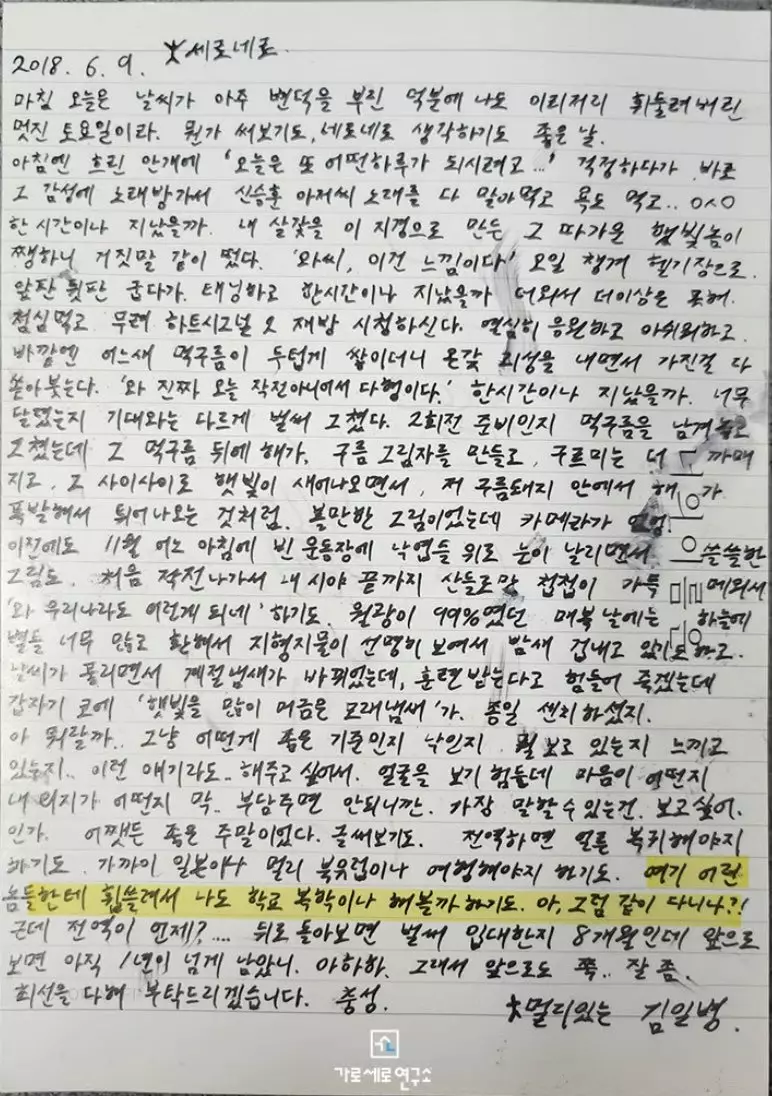 ★세로네로.
2018. 6. 9.
마침 오늘은 날씨가 아주 변덕을 부린 덕분에 나도 이리저리 휘둘려버린
멋진 토요일이라. 뭔가 써보기도, 네로네로 생각하기도 좋은날.
아침엔 흐린 안개에 '오늘은 또 어떤하루가 되시려고...' 걱정하다가 바로
그 감성에 노래방가서 신승훈 아저씨 노래를 다 말아먹고 욕도 먹고..
한시간이나 지났을까. 내 살갗을 이 지경으로 만든 그 따가운 햇빛놈이
쨍하니 거짓말 같이 떴다. '와씨, 이건 느낌이다' 오일 챙겨 헬기장으로.
앞판 뒷판 굽다가. 태닝하고 한시간이나 지났을까 더워서 더이상은 못해.
점심먹고 무려 하트시그널 2 재방 시청하신다. 열심히 응원하고 아쉬워하고.
바깥엔 어느새 먹구름이 두텁게 쌓이더니 온갖 괴성을 내면서 가진걸 다
쏟아붓는다. '와 진짜 오늘 작전아니어서 다행이다.' 한시간이나 지났을까. 너무
달렸는지 기대와는 다르게 벌써 그쳤다. 2회전 준비인지 먹구름을 남겨놓고
그쳤는데 그 먹구름 뒤에 해가, 구름 그림자를 만들고, 구르미는 더 까매
지고, 그 사이사이로 햇빛이 새어나오면서, 저 구름돼지 안에서 해가
폭발해서 튀어나오는 것처럼. 볼만한 그림이었는데 카메라가 없엉
이전에도 11월 어느 아침에 빈 운동장에 낙엽들 위로 눈이 날리면서 쓸쓸한
그림도. 처음 작전나가서 내 시야 끝까지 산들로만 첩첩이 가득 메워서
'와 우리나라도 이런게 되네' 하기도. 월광이 99%였던 매복날에는 하늘에
별들 너무 많고 환해서 지형지물이 선명히 보여서 밤새 겁내고 있기도하고.
날씨가 풀리면서 계절냄새가 바뀌었는데, 훈련받는다고 힘들어 죽겠는데
갑자기 코에 '햇빛을 많이 머금은 모래냄새'가. 종일 센치하셨지.
아 뭐랄까.. 그냥 어떻게 좋은 기준인지 낙인지 뭘 보고 있는지 느끼고
있는지.. 이런 얘기라도.. 해주고 싶어서. 얼굴을 보기 힘든데 마음이 어떤지
내 의지가 어떤지 막.. 부담주면 안되니깐. 가장 말할수있는건. 보고싶어.
인가. 어쨋든 좋은 주말이었다. 글써보기도. 전역하면 얼른 복귀해야지
하기도. 가까이 일본이나 멀리 북유럽이나 여행해야지 하기도. 여기 어린
놈들한테 휩쓸려서 나도 학교 복학이나 해볼까하기도. 아, 그럼 같이 다니나?!
근데 전역이 언제?.... 뒤로 돌아보면 벌써 입대한지 8개월인데 앞으로
보면 아직 1년이 넘게 남았니. 아하하. 그래서 앞으로도 쭉.. 잘 좀.
최선을 다해 부탁드리겠습니다. 충성.
★멀리있는 김일병.
가로세로연구소